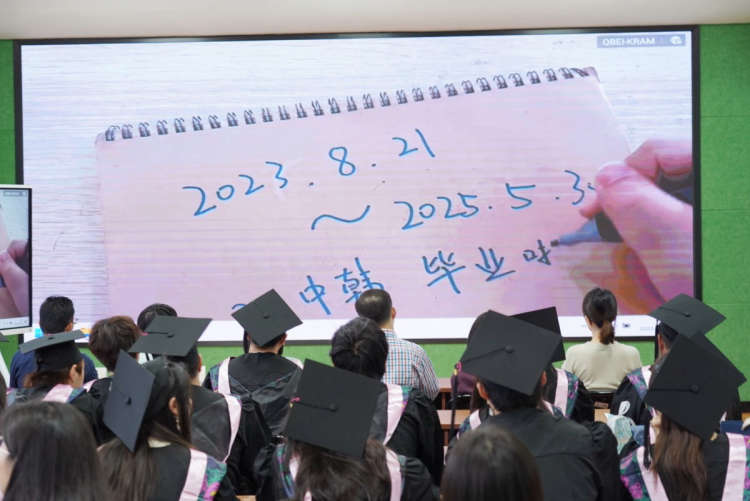 OBEI-KRAM
2023.8.21
～2025.5.3
中韩 毕业